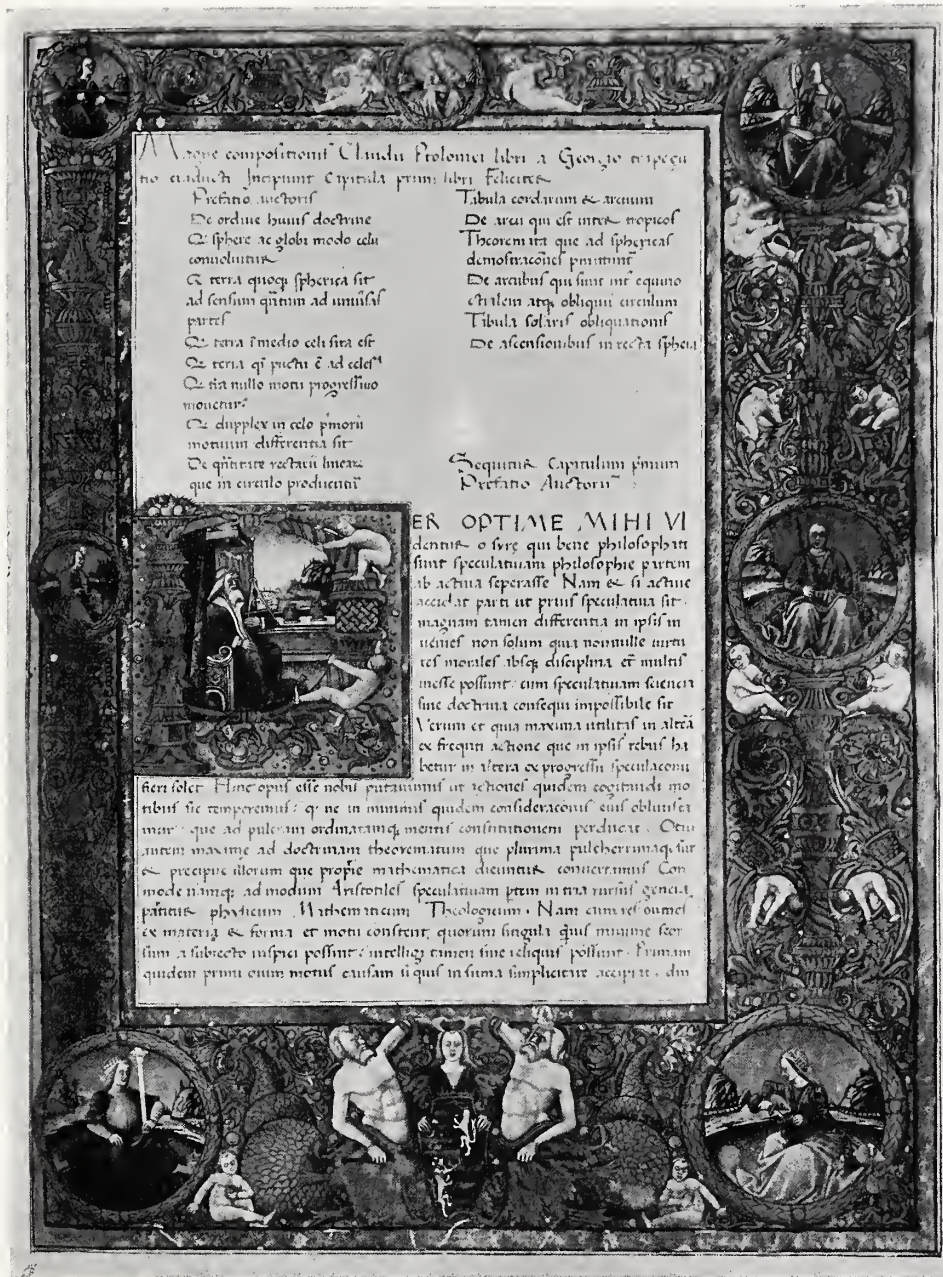 Magne compositionis Claudii Ptolomei libri a Georgio trapezū
tio traducti Incipiunt Capitula primi libri Feliciter
Prefatio auctoris
De ordine huius doctrine
Q sphere ac globi modo celū
convoluitur
Q terra quoq spherica sit
ad sensum qntum ad uniūsas
partes
Q terra ī medio celi sita est
Q terra qi puctū ē ad celestia
Q tra nullo motu progressivo
movetur
Q dupplex in celo pmorū
motuum differentia sit
De qntitate rectarū linear
que in circulo producuntr
Tabula cordarum & arcuum
De arcu qui est inter tropicos
Theoremata que ad sphericas
demostracōes pmittuntr
De arcubus qui sunt int equino
ctialem atq obliquū circulum
Tabula solaris obliquationis
De ascensionibus in recta sphera
Sequitur Capitulum pmum
Prefatio Auctoris
ER OPTIME MIHI VI
dentur o syre qui bene philosophati
sunt speculativam philosophie partem
ab activa seperasse Nam & si active
accidat parti ut prius speculativa sit
magnam tamen differentia in ipsis in
venies non solum quia nonnulle virtu
tes morales absq disciplina et multis
inesse possunt cum speculativam sciencia
sine doctrina consequi impossibile sit
Verum et quia maxima utilitas in alteā
ex frequti actione que in ipsis rebus ha
betur in altera ex progressu speculacōis
fieri solet Hinc opus esse nobis putavimus ut actiones quidem cogitandi mo
tibus sic temperemus q ne in minimis quidem consideracōis eius oblivisca
mur que ad pulcram ordinatamq mentis constitutionem perducat Otiū
autem maxime ad doctrinam theorematum que plurima pulcherrimaq sūt
& precipue illorum que proprie mathematica dicuntur convertamus Com
mode namq ad modum Aristotiles speculativam ptem in tria rursus genera
partitur physicum Mathematicum Theologicum Nam cum res omnes
ex materia & forma et motu constent quorum singula minime seor
sum a subiecto inspici possunt intelligi tamen sine reliquis possunt Primam
quidem primi motus causam si quis in suma simplicitate accipiat